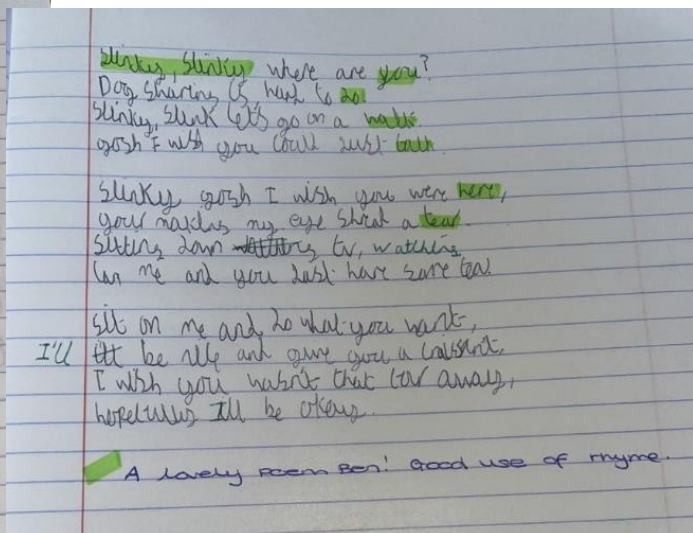 Slinky, Slinky where are you?
Dog sharing is hard to do
Slinky, Slink let's go on a walk
gosh I wish you could just talk
Slinky gosh I wish you were here,
your making my eye shead a tear.
Sitting down tv, watching
Can me and you just have some tea.
Sit on me and do what you want,
I'll be nice and give you a croissant.
I wish you wasn't that far away,
hopefully Ill be okay.
A lovely poem Ben! Good use of rhyme.